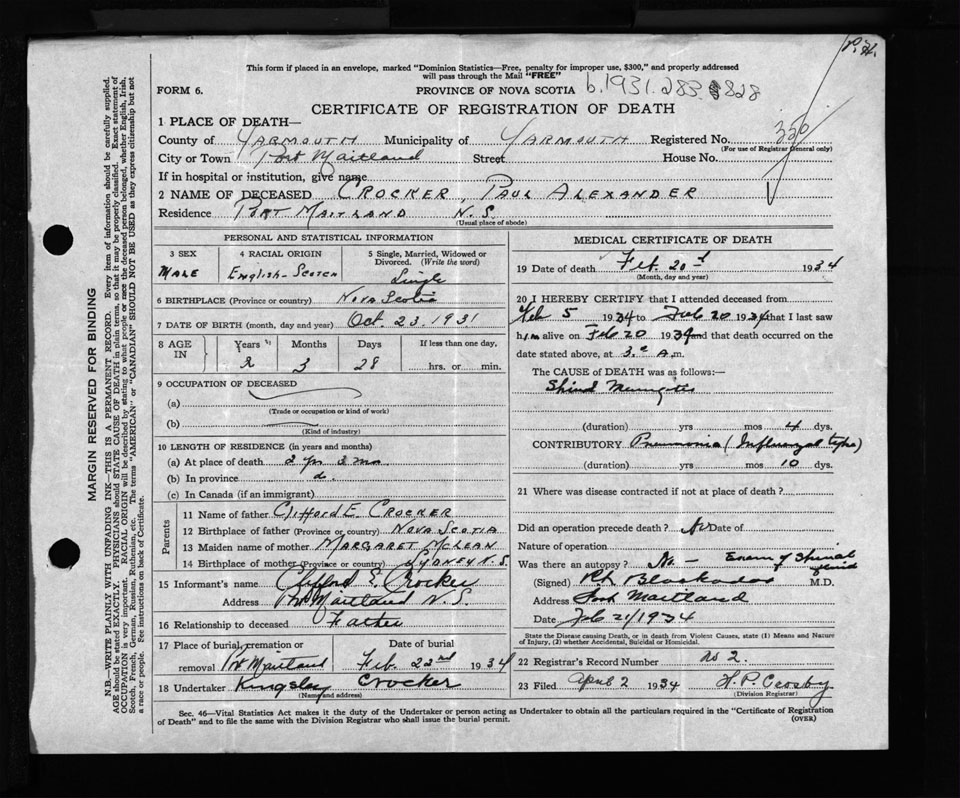 P.H.
This form if placed in an envelope, marked "Dominion Statistics—Free, penalty for improper use, $300," and properly addressed
will pass through the Mail "FREE"
FORM 6. PROVINCE OF NOVA SCOTIA b. 1931. 283
CERTIFICATE OF REGISTRATION OF DEATH
1 PLACE OF DEATH—
County of YARMOUTH Municipality of YARMOUTH Registered No. 350
(For use of Registrar General only)
City or Town Port Maitland Street House No.
If in hospital or institution, give name
2 NAME OF DECEASED CROCKER, PAUL ALEXANDER
Residence PORT MAITLAND N.S.
(Usual place of abode)
PERSONAL AND STATISTICAL INFORMATION
3 SEX 4 RACIAL ORIGIN 5 Single, Married, Widowed or
Divorced. (Write the word)
MALE English-Scotch Single
6 BIRTHPLACE (Province or country) NOVA Scotia
7 DATE OF BIRTH (month, day and year) Oct. 23. 1931
8 AGE IN Years Months Days If less than one day,
2 3 28 hrs. or min.
9 OCCUPATION OF DECEASED
(a)
(Trade or occupation or kind of work)
(b)
(Kind of industry)
10 LENGTH OF RESIDENCE (in years and months)
(a) At place of death 2 yr 3 mo
(b) In province do.
(c) In Canada (if an immigrant)
Parents
11 Name of father Clifford E. CROCKER
12 Birthplace of father (Province or country) NOVA SCOTIA
13 Maiden name of mother MARGARET McLEAN
14 Birthplace of mother (Province or country) SYDNEY N.S.
15 Informant's name Clifford E. Crocker
Address Port Maitland N.S.
16 Relationship to deceased Father
17 Place of burial, cremation or Date of burial
removal Pt Maitland Feb. 22nd 1934
18 Undertaker Kingsley Crocker
(Name and address)
MEDICAL CERTIFICATE OF DEATH
19 Date of death Feb. 20 1934
(Month, day and year)
20 I HEREBY CERTIFY that I attended deceased from
Feb 5 1934 to Feb 20 1934 that I last saw
him alive on Feb 20 1934 and that death occurred on the
date stated above, at 3 A.m.
The CAUSE of DEATH was as follows:—
Spinal Meningitis
(duration) yrs mos 4 dys.
CONTRIBUTORY Pneumonia (Influenzal type)
(duration) yrs mos 10 dys.
21 Where was disease contracted if not at place of death?
Did an operation precede death? No Date of
Nature of operation
Was there an autopsy? No — Exam of Spinal
fluid
(Signed) M.D.
Address Port Maitland
Date Feb 21/1934
State the Disease causing Death, or in death from Violent Causes, state (1) Means and Nature
of Injury, (2) whether Accidental, Suicidal or Homicidal.
22 Registrar's Record Number No 2.
23 Filed April 2 1934 H.P. Crosby
(Division Registrar)
Sec. 46—Vital Statistics Act makes it the duty of the Undertaker or person acting as Undertaker to obtain all the particulars required in the "Certificate of Registration
of Death" and to file the same with the Division Registrar who shall issue the burial permit. (OVER)
MARGIN RESERVED FOR BINDING
N.B.—WRITE PLAINLY WITH UNFADING INK—THIS IS A PERMANENT RECORD. Every item of information should be carefully supplied.
AGE should be stated EXACTLY. PHYSICIANS should STATE CAUSE OF DEATH in plain terms, so that it may be properly classified. Exact statement of
OCCUPATION is very important. RACIAL ORIGIN will be described by stating to what people or race the deceased person belonged, whether English, Irish,
Scotch, French, German, Russian, Ruthenian, etc. The terms "AMERICAN" or "CANADIAN" SHOULD NOT BE USED as they express citizenship but not
a race or people. See instructions on back of Certificate.